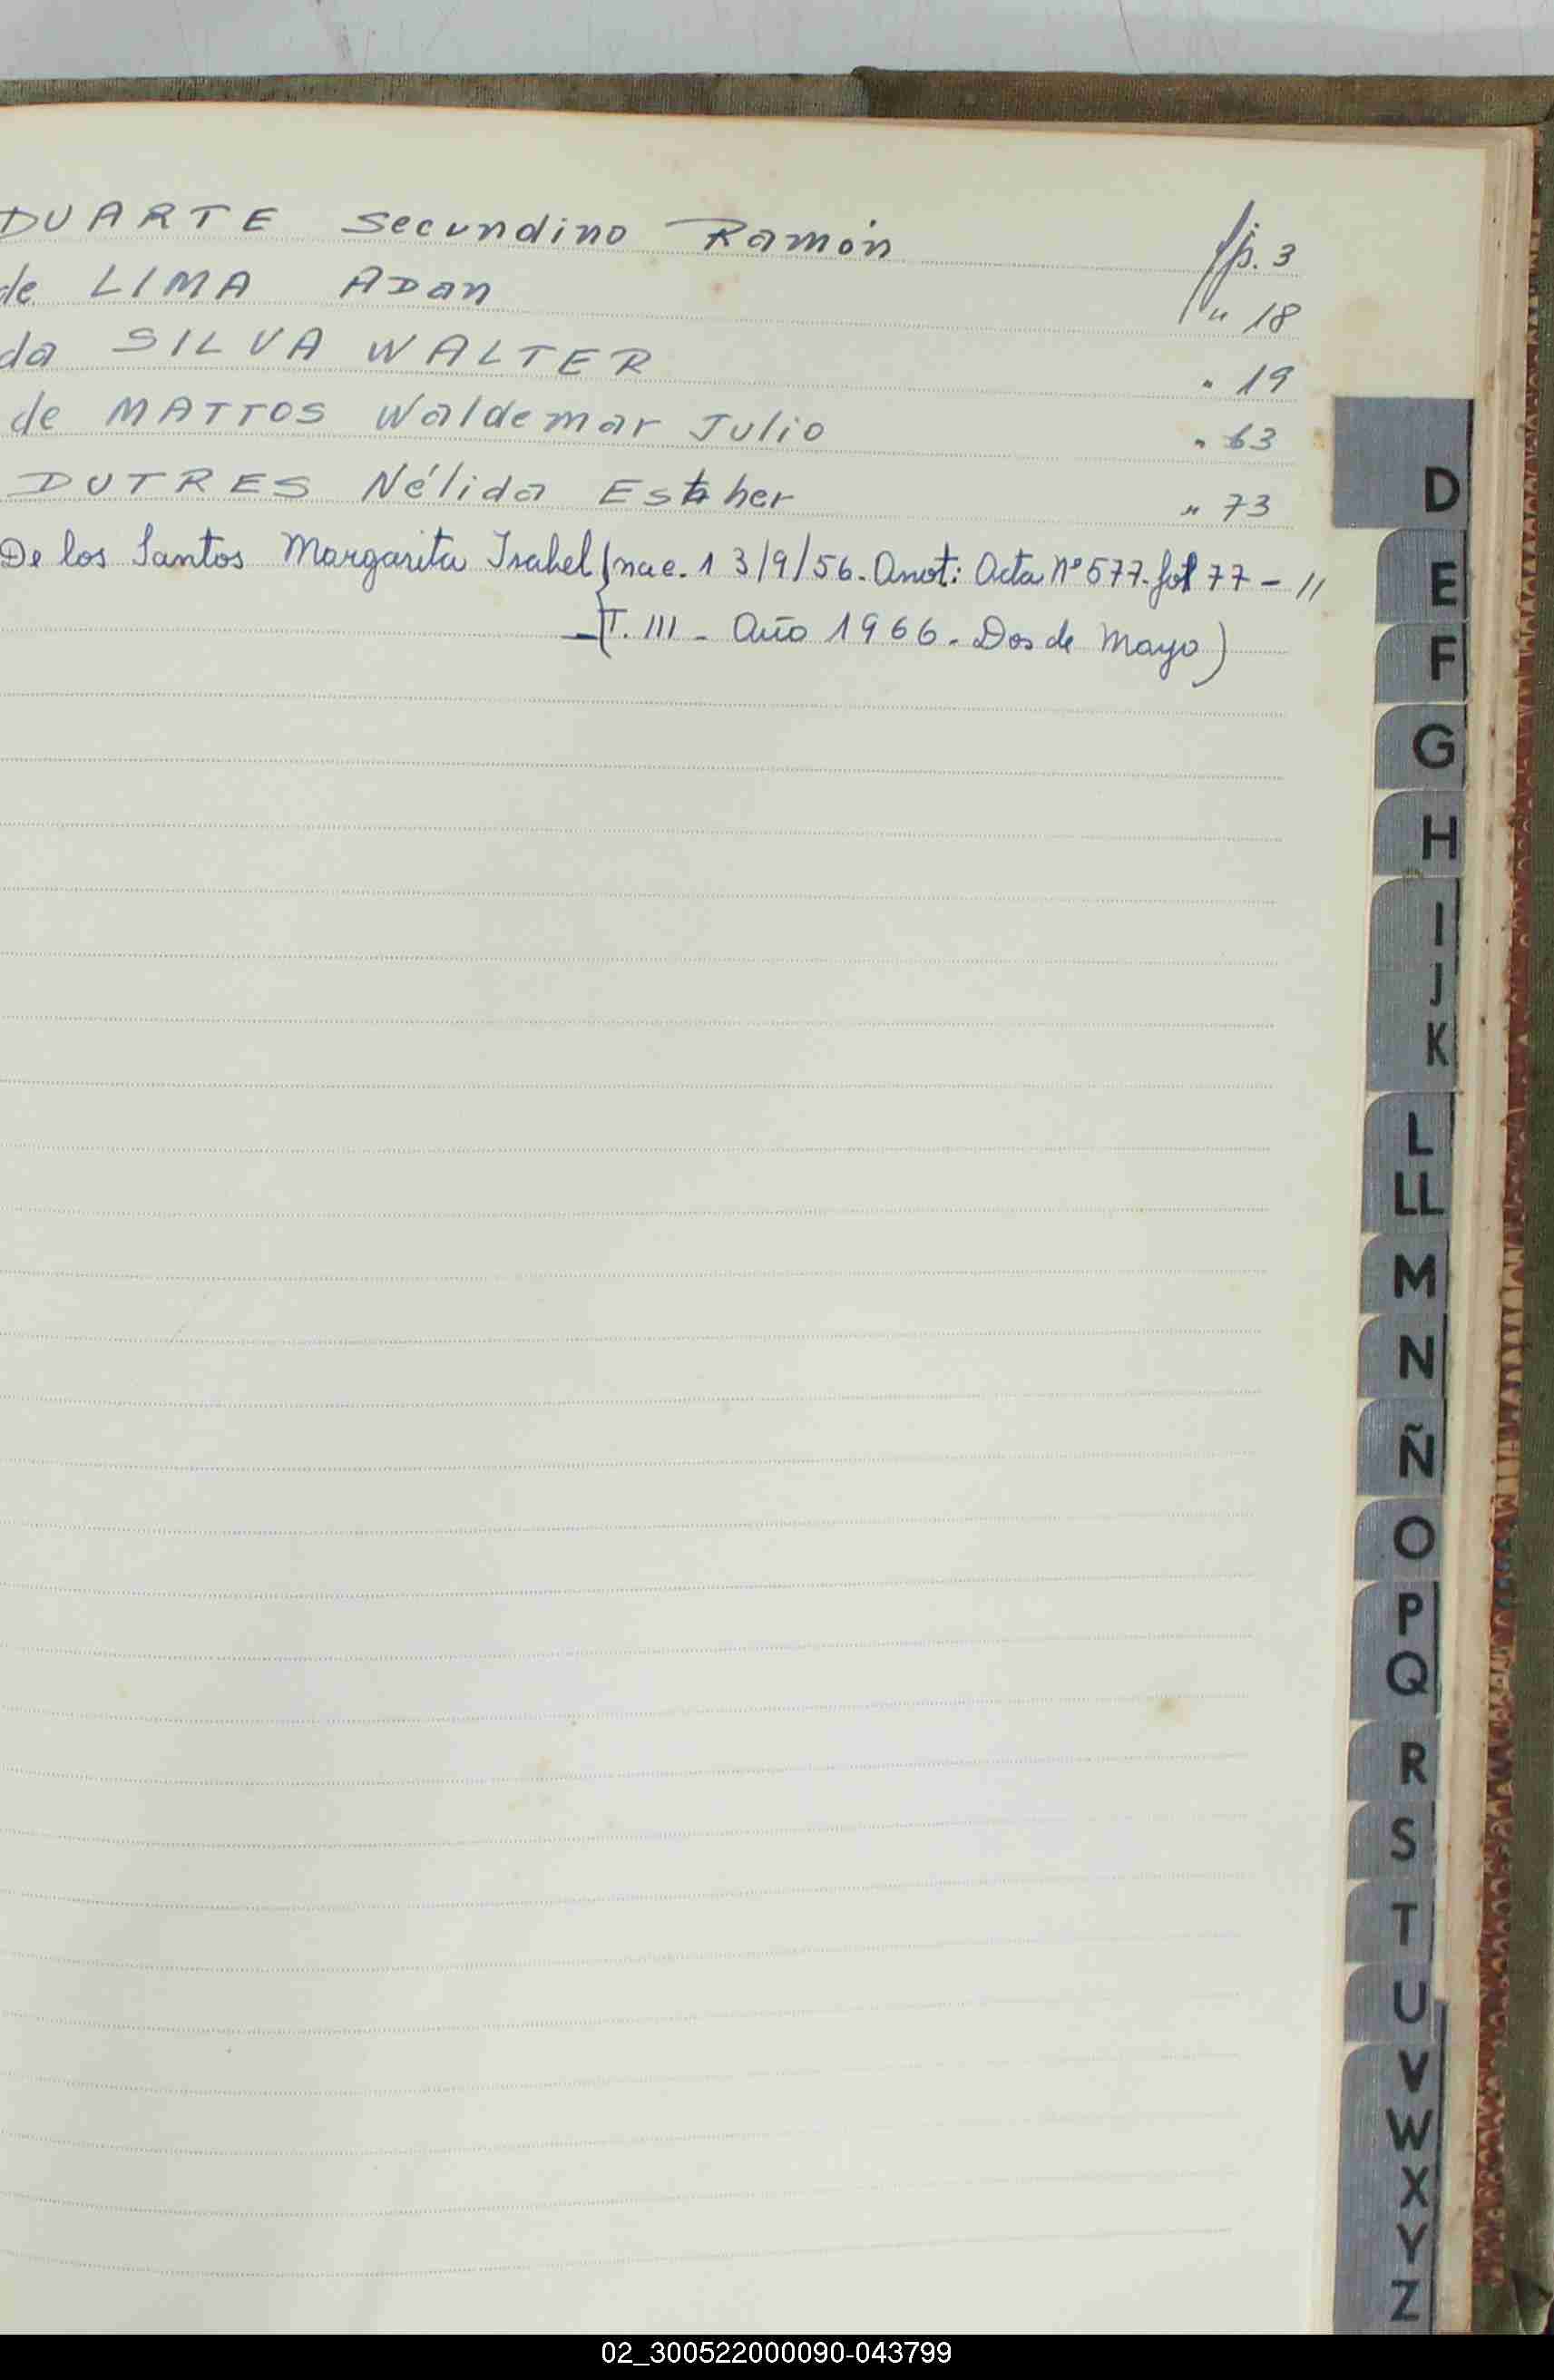 DUARTE Secundino Ramón fp. 3
de LIMA ADan " 18
da SILVA WALTER " 19
de MATTOS Waldemar Julio " 63
DUTRES Nélida Esther " 73
De los Santos Margarita Isabel (nac. 13/9/56. Anot: Acta Nº 577. fol 77 - //
- (T. III - Año 1966. Dos de Mayo)
D
E
F
G
H
I
J
K
L
LL
M
N
Ñ
O
P
Q
R
S
T
U
V
W
X
Y
Z
02_300522000090-043799